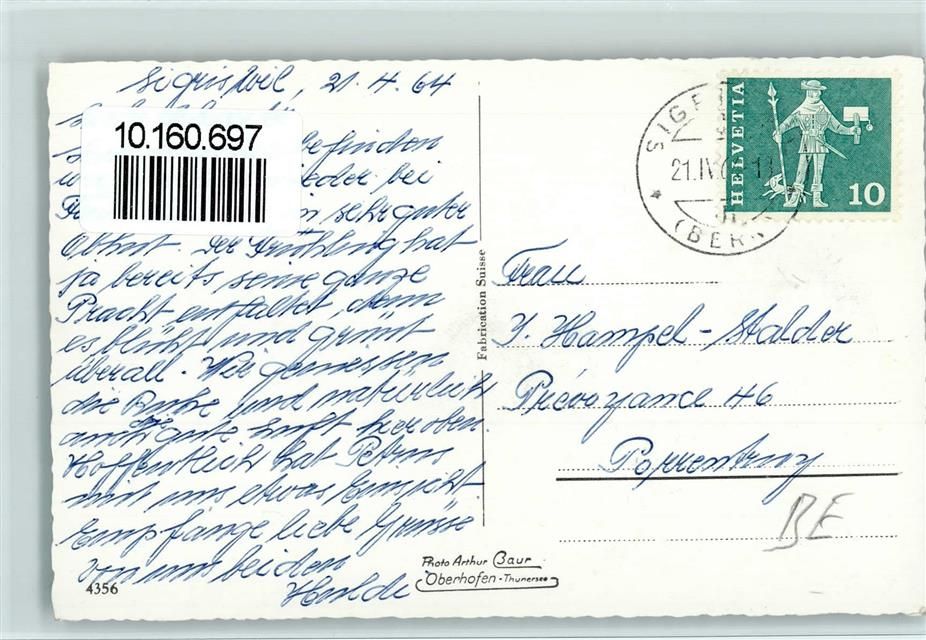 Sigriswil, 21.4.64
10.160.697
befinden
wieder bei
sehr guter
Obhut. Der Frühling hat
ja bereits seine ganze
Pracht entfaltet, denn
es blüht und grünt
überall. Wir geniessen
die Ruhe und natürlich
auch die gute Luft hier oben.
Hoffentlich hat Petrus
mit uns etwas Einsicht
Empfange liebe Grüsse
von uns beiden
Hulda
4356
Fabrication Suisse
Photo Arthur Baur
Oberhofen-Thunersee
HELVETIA
10
21.IV.6
(BERN)
Frau
J. Hampel-Stalder
Prévoyance 46
Porrentruy
BE